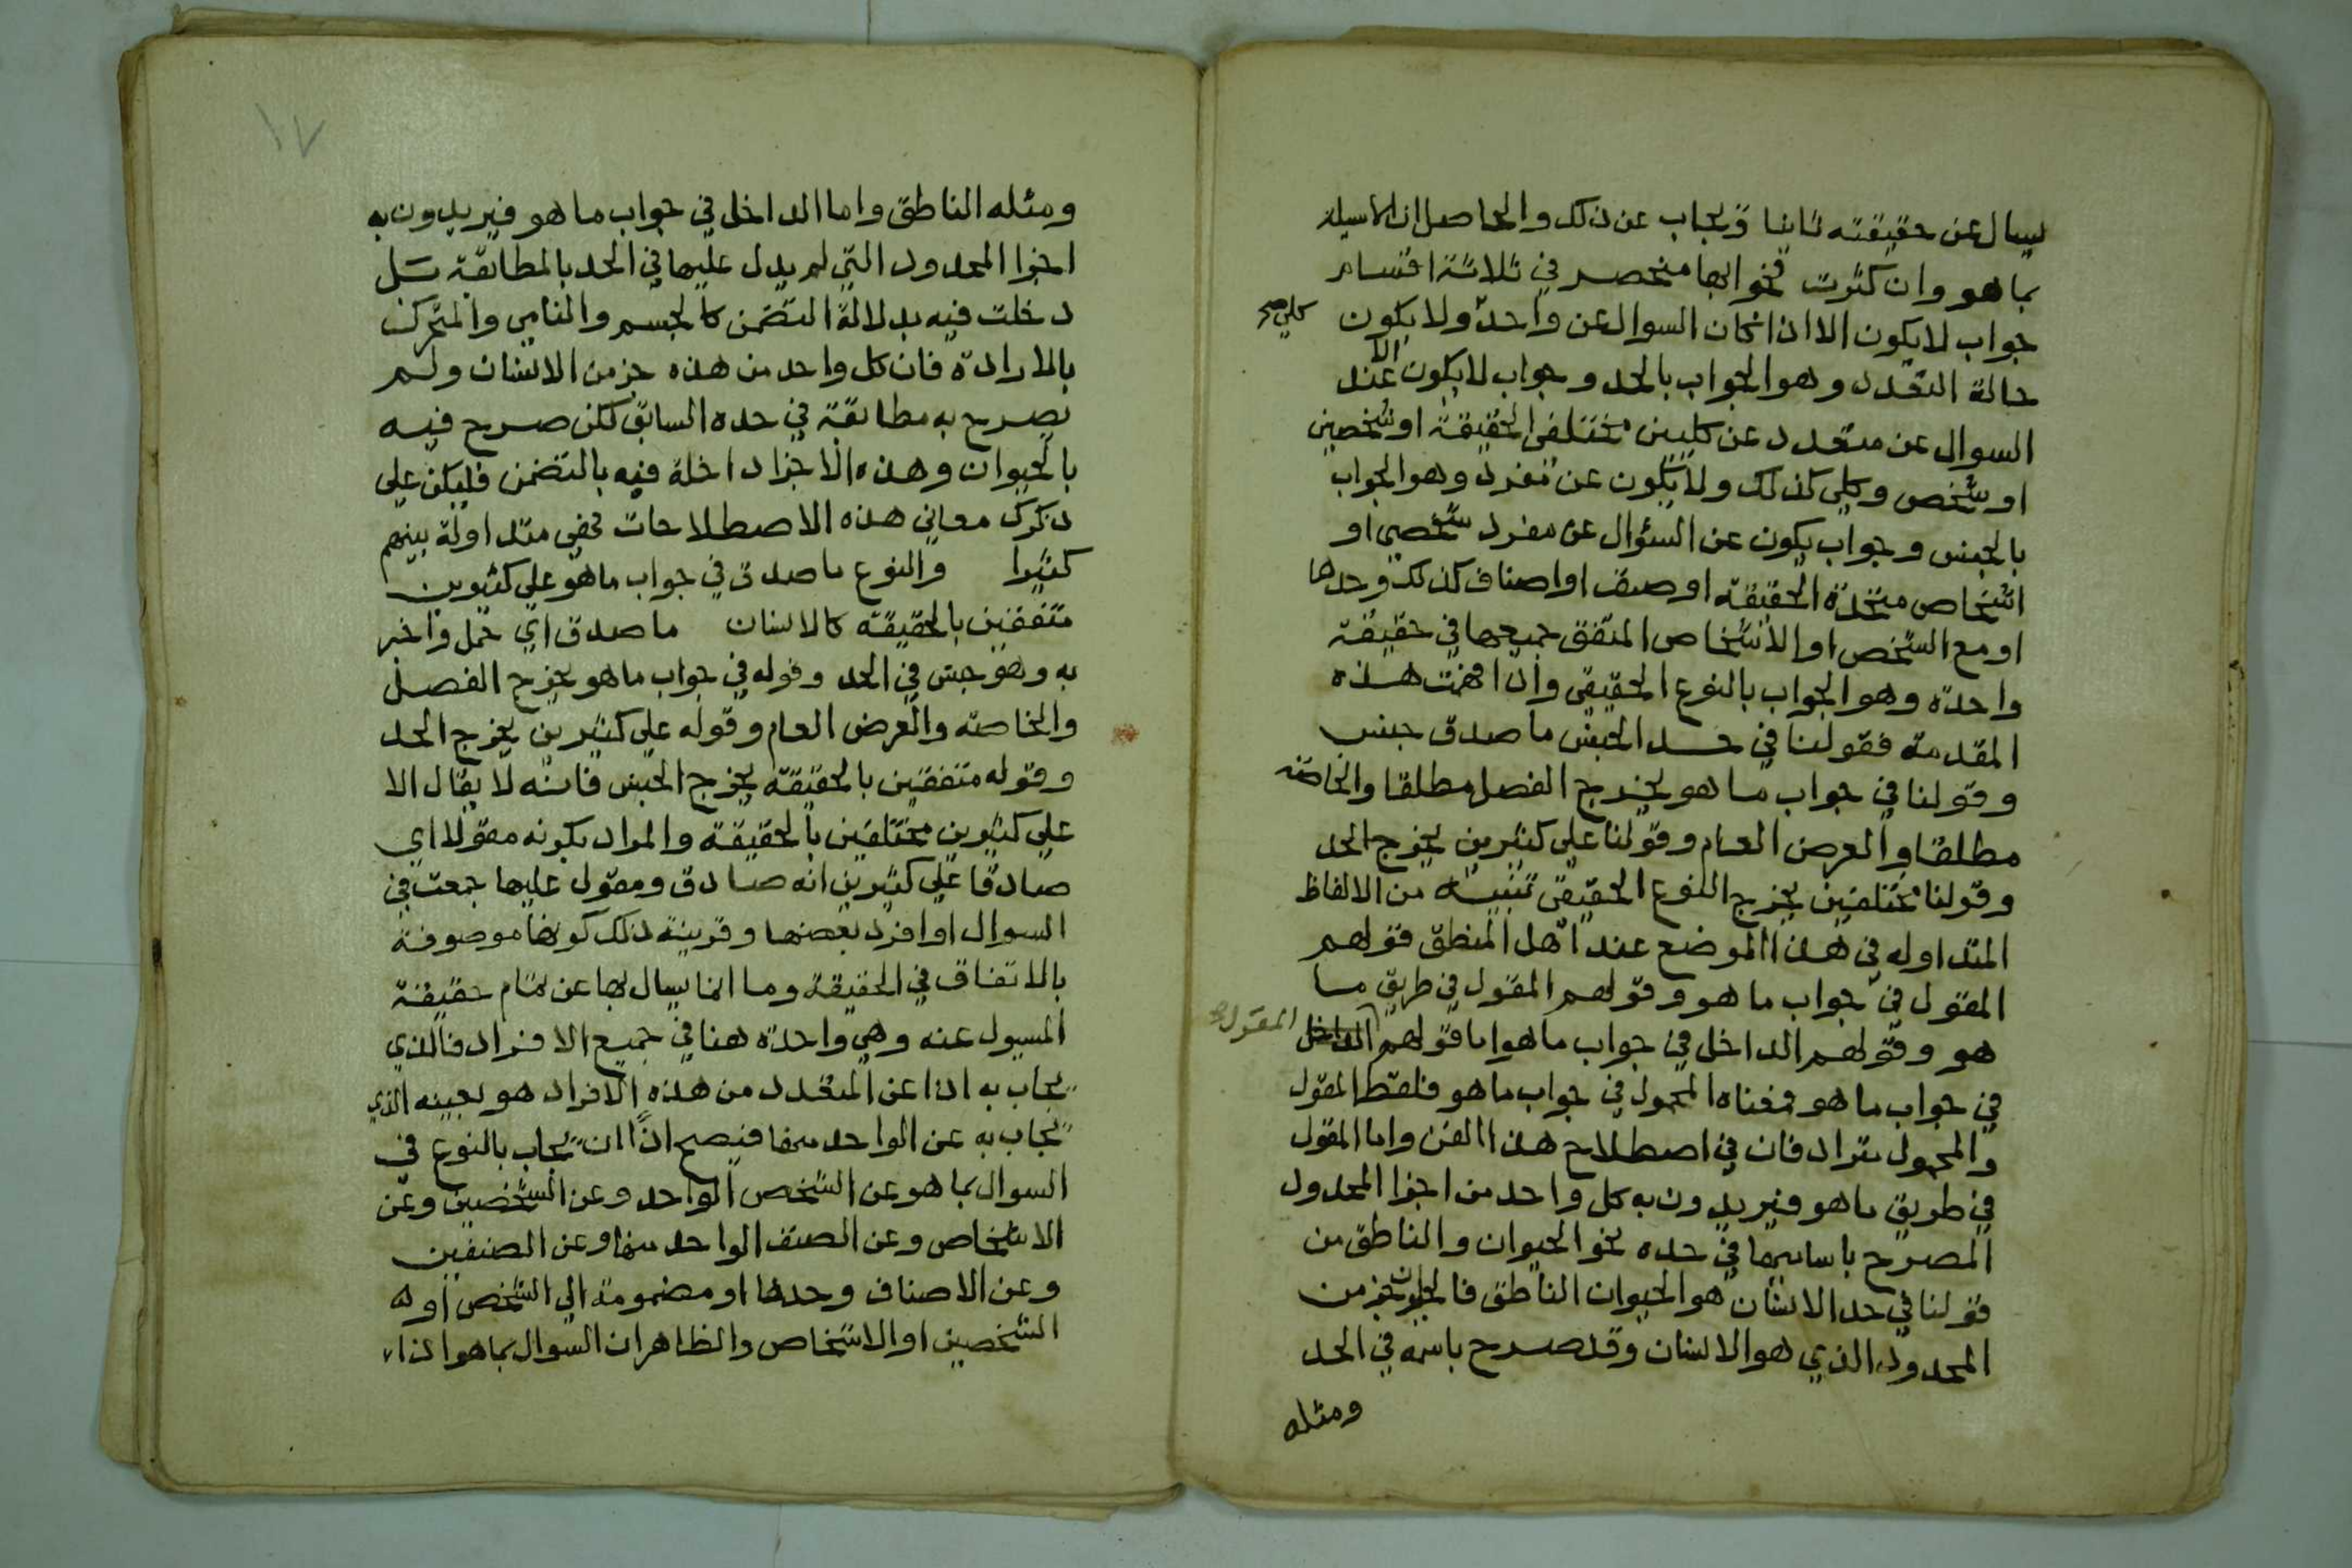 ليسال عن حقيقته ثانيا ويجاب عن ذلك والحاصل ان الاسيلة
بما هو وان كثرت فجوابها منحصر في ثلاثة اقسام
جواب لا يكون الا اذا كان السوال عن واحد ولا يكون
كلي صح
حالة التعدد وهو الجواب بالحد وجواب لا يكون الا عند
السوال عن متعدد عن كليين مختلفي الحقيقة او شخصين
او شخص وكلي كذلك ولا يكون عن مفرد وهو الجواب
بالجنس وجواب يكون عن السئوال عن مفرد شخصي او
اشخاص متحدة الحقيقة او صنف او اصناف كذلك وحدها
او مع الشخص او الاشخاص المتفق جميعها في حقيقة
واحدة وهو الجواب بالنوع الحقيقي واذا فهمت هذه
المقدمة فقولنا في حد الجنس ما صدق جنس
وقولنا في جواب ما هو يخرج الفصل مطلقا والخاصة
مطلقا والعرض العام وقولنا علي كثيرين يخرج الحد
وقولنا مختلفين يخرج النوع الحقيقي تنبيه من الالفاظ
المتداوله في هذا الموضع عند اهل المنطق قولهم
المقول في جواب ما هو وقولهم المقول في طريق ما
هو وقولهم الداخل في جواب ما هو اما قولهم الداخل
المقول
في جواب ما هو فمعناه المحمول في جواب ما هو فلفظ المقول
والمحمول مترادفان في اصطلاح هذا الفن واما المقول
في طريق ما هو فيريدون به كل واحد من اجزا المحدود
المصرح باسايها في حده نحو الحيوان والناطق من
قولنا في حد الانسان هو الحيوان الناطق فالحيوان جز من
المحدود الذي هو الانسان وقد صرح باسمه في الحد
ومثله
١٧
ومثله الناطق واما الداخل في جواب ما هو فيريدون به
اجزا المحدود التي لم يدل عليها في الحد بالمطابقة بل
دخلت فيه بدلالة التضمن كالجسم والنامي والمتحرك
بالارادة فان كل واحد من هذه جز من الانسان ولم
يصرح به مطابقة في حده السابق لكن صرح فيه
بالحيوان وهذه الاجزا داخلة فيه بالتضمن فليكن علي
ذكرك معاني هذه الاصطلاحات فهي متداولة بينهم
كثيرا والنوع ما صدق في جواب ما هو علي كثيرين
متفقين بالحقيقة كالانسان ما صدق اي حمل واخبر
به وهو جنس في الحد وقوله في جواب ما هو يخرج الفصل
والخاصة والعرض العام وقوله علي كثيرين يخرج الحد
وقوله متفقين بالحقيقة يخرج الجنس فانه لا يقال الا
علي كثيرين مختلفين بالحقيقة والمراد بكونه مقولا اي
صادقا علي كثيرين انه صادق ومقول عليها جمعت في
السوال او افرد بعضها وقرينة ذلك كونها موصوفة
بالاتفاق في الحقيقة وما انما يسال بها عن تمام حقيقة
المسيول عنه وهي واحدة هنا في جميع الافراد فالذي
يجاب به اذا عن المتعدد من هذه الافراد هو بعينه الذي
يجاب به عن الواحد منها فيصح اذًا ان يجاب بالنوع في
السوال بما هو عن الشخص الواحد وعن الشخصين وعن
الاشخاص وعن الصنف الواحد منها وعن الصنفين
وعن الاصناف وحدها او مضمومة الي الشخص او
الشخصين او الاشخاص والظاهر ان السوال بما هو اذا